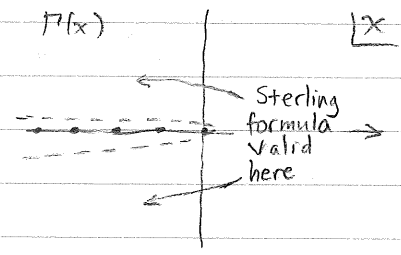 Γ(x)
x
Sterling
formula
valid
here